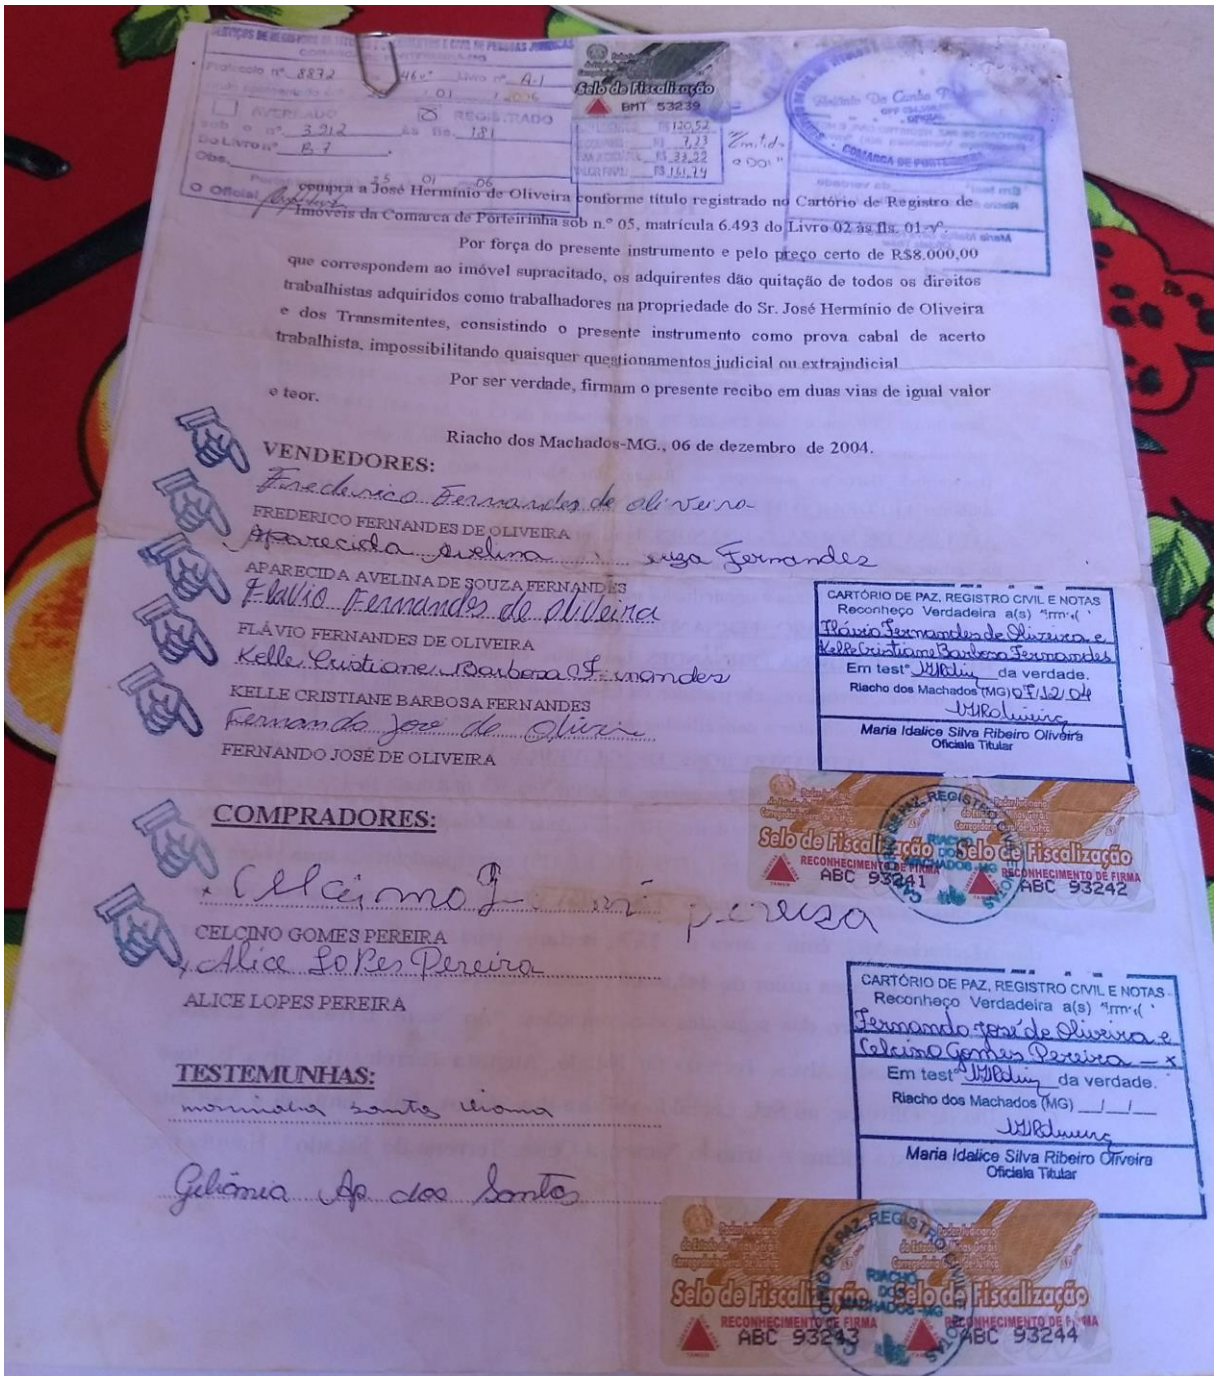 SERVIÇOS DE REGISTROS DE TÍTULOS E DOCUMENTOS E CIVIL DE PESSOAS JURÍDICAS
Protocolo nº 8872 Livro nº A-1
01 2006
AVERBADO REGISTRADO
sob o nº 3.912 às fls. 181
Do Livro nº B 7
Obs.
25 01 06
O Oficial
Selo de Fiscalização
BMT 53239
R$ 120,52
7,23
R$ 33,22
R$ 161,74
COMARCA DE PORTEIRINHA
compra a José Hermínio de Oliveira conforme título registrado no Cartório de Registro de
Imóveis da Comarca de Porteirinha sob n.º 05, matrícula 6.493 do Livro 02 às fls. 01-vº.
Por força do presente instrumento e pelo preço certo de R$8.000,00
que correspondem ao imóvel supracitado, os adquirentes dão quitação de todos os direitos
trabalhistas adquiridos como trabalhadores na propriedade do Sr. José Hermínio de Oliveira
e dos Transmitentes, consistindo o presente instrumento como prova cabal de acerto
trabalhista, impossibilitando quaisquer questionamentos judicial ou extrajudicial
Por ser verdade, firmam o presente recibo em duas vias de igual valor
e teor.
Riacho dos Machados-MG., 06 de dezembro de 2004.
VENDEDORES:
Frederico Fernandes de oliveira
FREDERICO FERNANDES DE OLIVEIRA
Aparecida Avelina Souza Fernandes
APARECIDA AVELINA DE SOUZA FERNANDES
Flavio Fernandes de Oliveira
FLÁVIO FERNANDES DE OLIVEIRA
Kelle Cristiane Barbosa Fernandes
KELLE CRISTIANE BARBOSA FERNANDES
Fernando José de Oliveira
FERNANDO JOSÉ DE OLIVEIRA
CARTÓRIO DE PAZ, REGISTRO CIVIL E NOTAS
Reconheço Verdadeira a(s) firm
Flávio Fernandes de Oliveira e
Kelle Cristiane Barbosa Fernandes
Em testº da verdade.
Riacho dos Machados (MG) 07/12/04
Maria Idalice Silva Ribeiro Oliveira
Oficiala Titular
Selo de Fiscalização
RECONHECIMENTO DE FIRMA
ABC 93241
Selo de Fiscalização
RECONHECIMENTO DE FIRMA
ABC 93242
CARTÓRIO DE PAZ, REGISTRO CIVIL E NOTAS
RIACHO DOS MACHADOS-MG
COMPRADORES:
x Celcimo pereisa
CELCINO GOMES PEREIRA
x Alice Lopes Pereira
ALICE LOPES PEREIRA
CARTÓRIO DE PAZ, REGISTRO CIVIL E NOTAS
Reconheço Verdadeira a(s) firm
Fernando José de Oliveira e
Celcino Gomes Pereira — x
Em testº da verdade.
Riacho dos Machados (MG) __/__/__
Maria Idalice Silva Ribeiro Oliveira
Oficiala Titular
TESTEMUNHAS:
santos
Geliânia Ap. dos Santos
Selo de Fiscalização
RECONHECIMENTO DE FIRMA
ABC 93243
Selo de Fiscalização
RECONHECIMENTO DE FIRMA
ABC 93244
CARTÓRIO DE PAZ, REGISTRO CIVIL E NOTAS
RIACHO DOS MACHADOS-MG